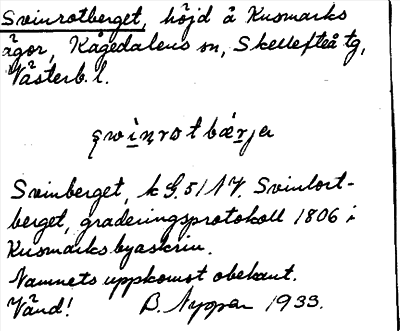 Svinrotberget, höjd å Kusmarks
ägor, Kågedalens sn, Skellefteå tg,
Västerb. l.
Svinberget, k G. 51 NV. Svinlort-
berget, graderingsprotokoll 1806 i
Kusmarks byaskrin.
Namnets uppkomst obekant.
Vänd! B. Nyman 1933.